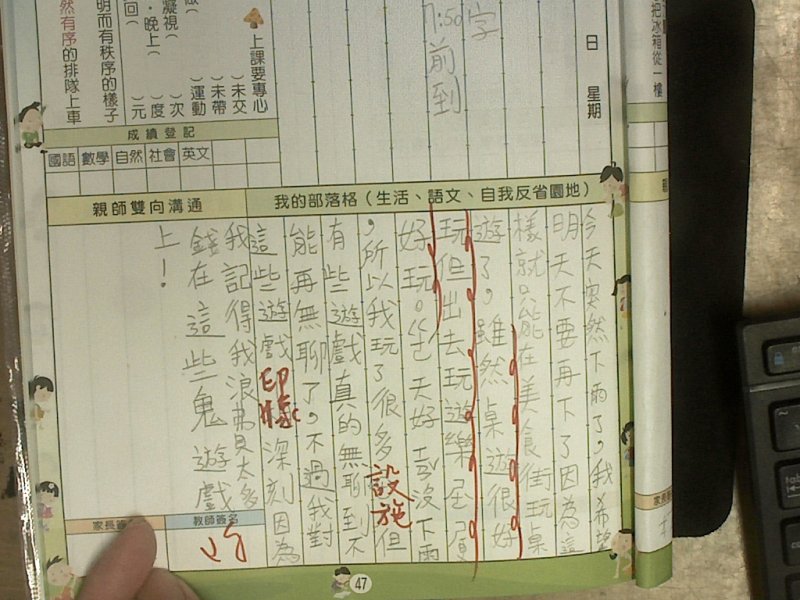 把冰箱從一樓
日 星期
字
7:50前到
上課要專心
( )未交
( )未帶
( )運動
( )次
( )度
( )元
凝視(
·晚上(
回(
明而有秩序的樣子
然有序的排隊上車
成績登記
國語 數學 自然 社會 英文
我的部落格(生活、語文、自我反省園地)
親師雙向溝通
今天突然下雨了,我希望
明天不要再下了因為這
樣就只能在美食街玩桌
遊了,雖然桌遊很好
玩但出去玩遊樂
好玩。 天好 沒下雨
,所以我玩了很多設施但
有些遊戲真的無聊到不
能再無聊了,不過我對
這些遊戲印象深刻因為
我記得我浪費太多
錢在這些鬼遊戲
上!
教師簽名
家長簽
47